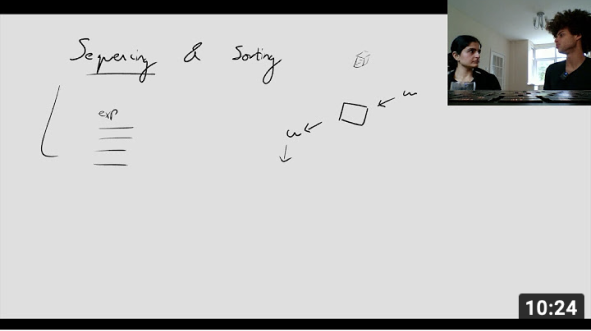 Sequencing & Sorting
exp
10:24